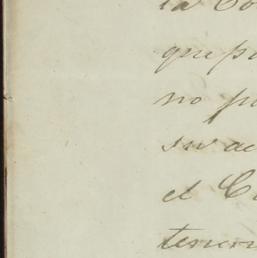 la Co
que p
no p
su ac
el C